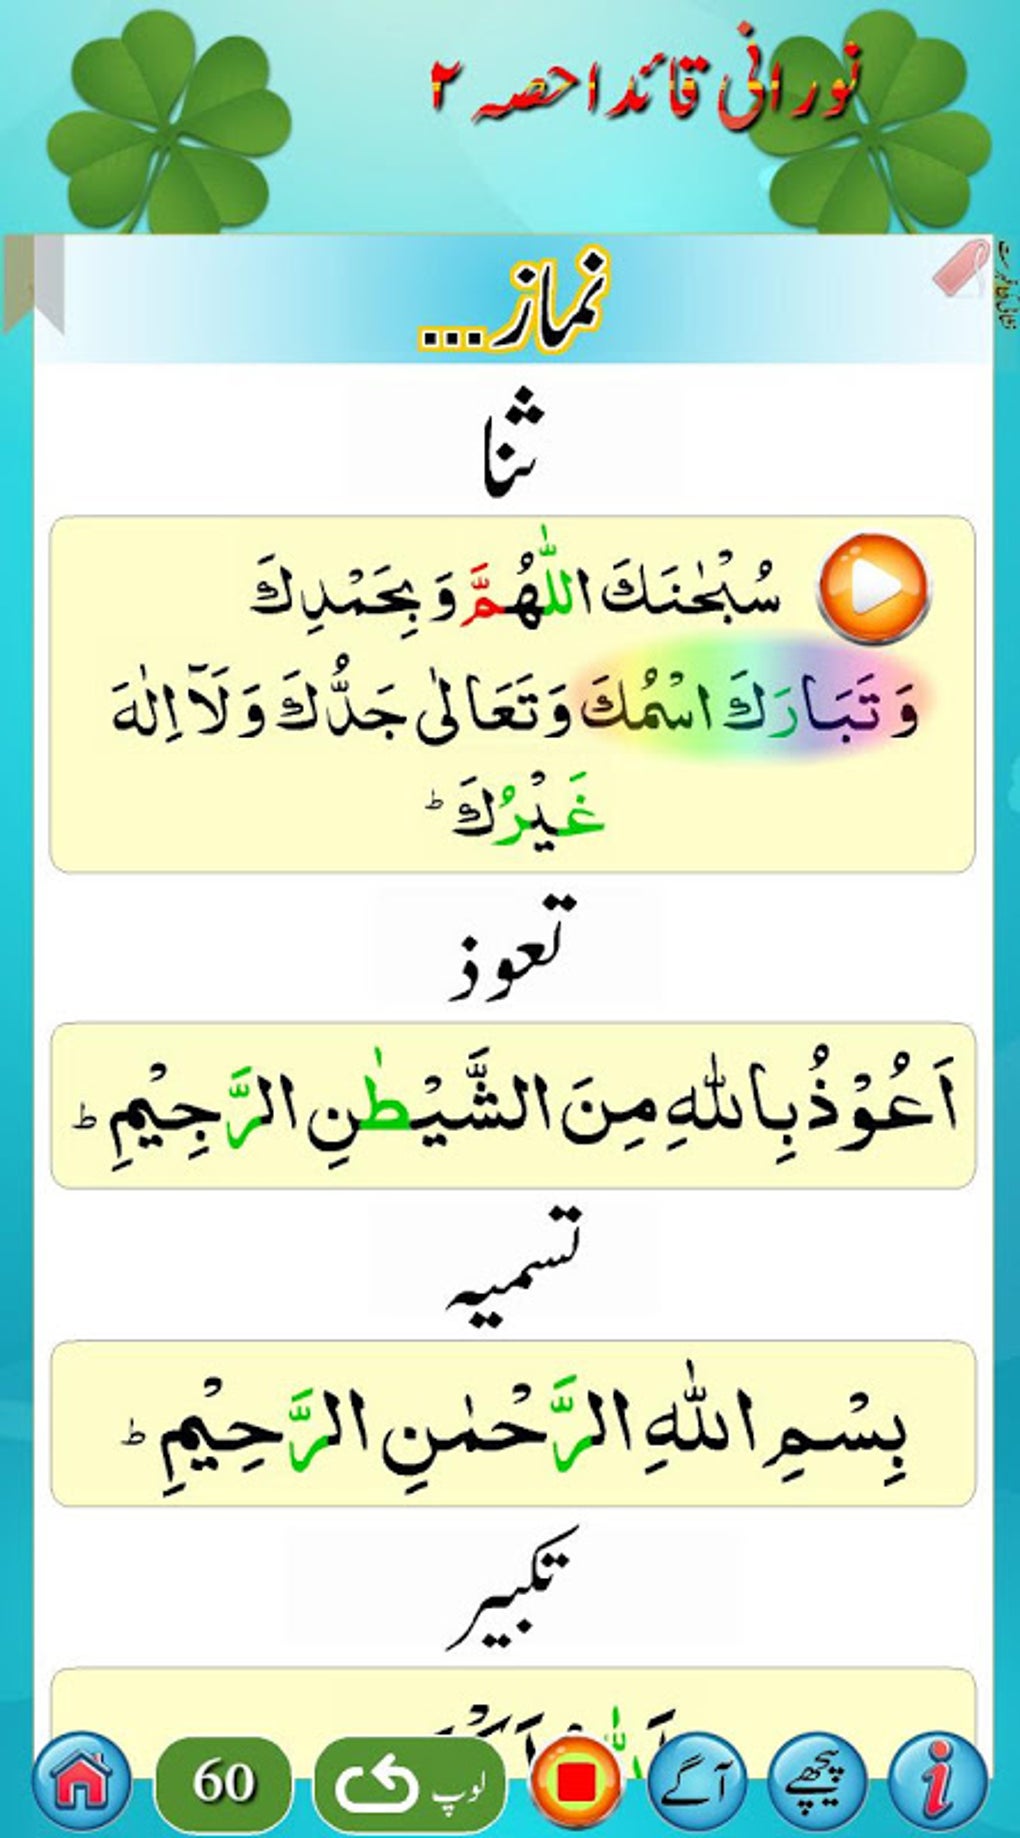 نورانی قائدا حصہ ۲
نماز...
ثنا
سُبْحٰنَكَ اللّٰهُمَّ وَ بِحَمْدِكَ
وَ تَبَارَكَ اسْمُكَ وَ تَعَالٰی جَدُّكَ وَ لَآ اِلٰهَ
غَیْرُكَ ؕ
تعوذ
اَعُوْذُ بِاللّٰهِ مِنَ الشَّیْطٰنِ الرَّجِیْمِ ؕ
تسمیہ
بِسْمِ اللّٰهِ الرَّحْمٰنِ الرَّحِیْمِ ؕ
تکبیر
60 لوپ آگے پیچھے i